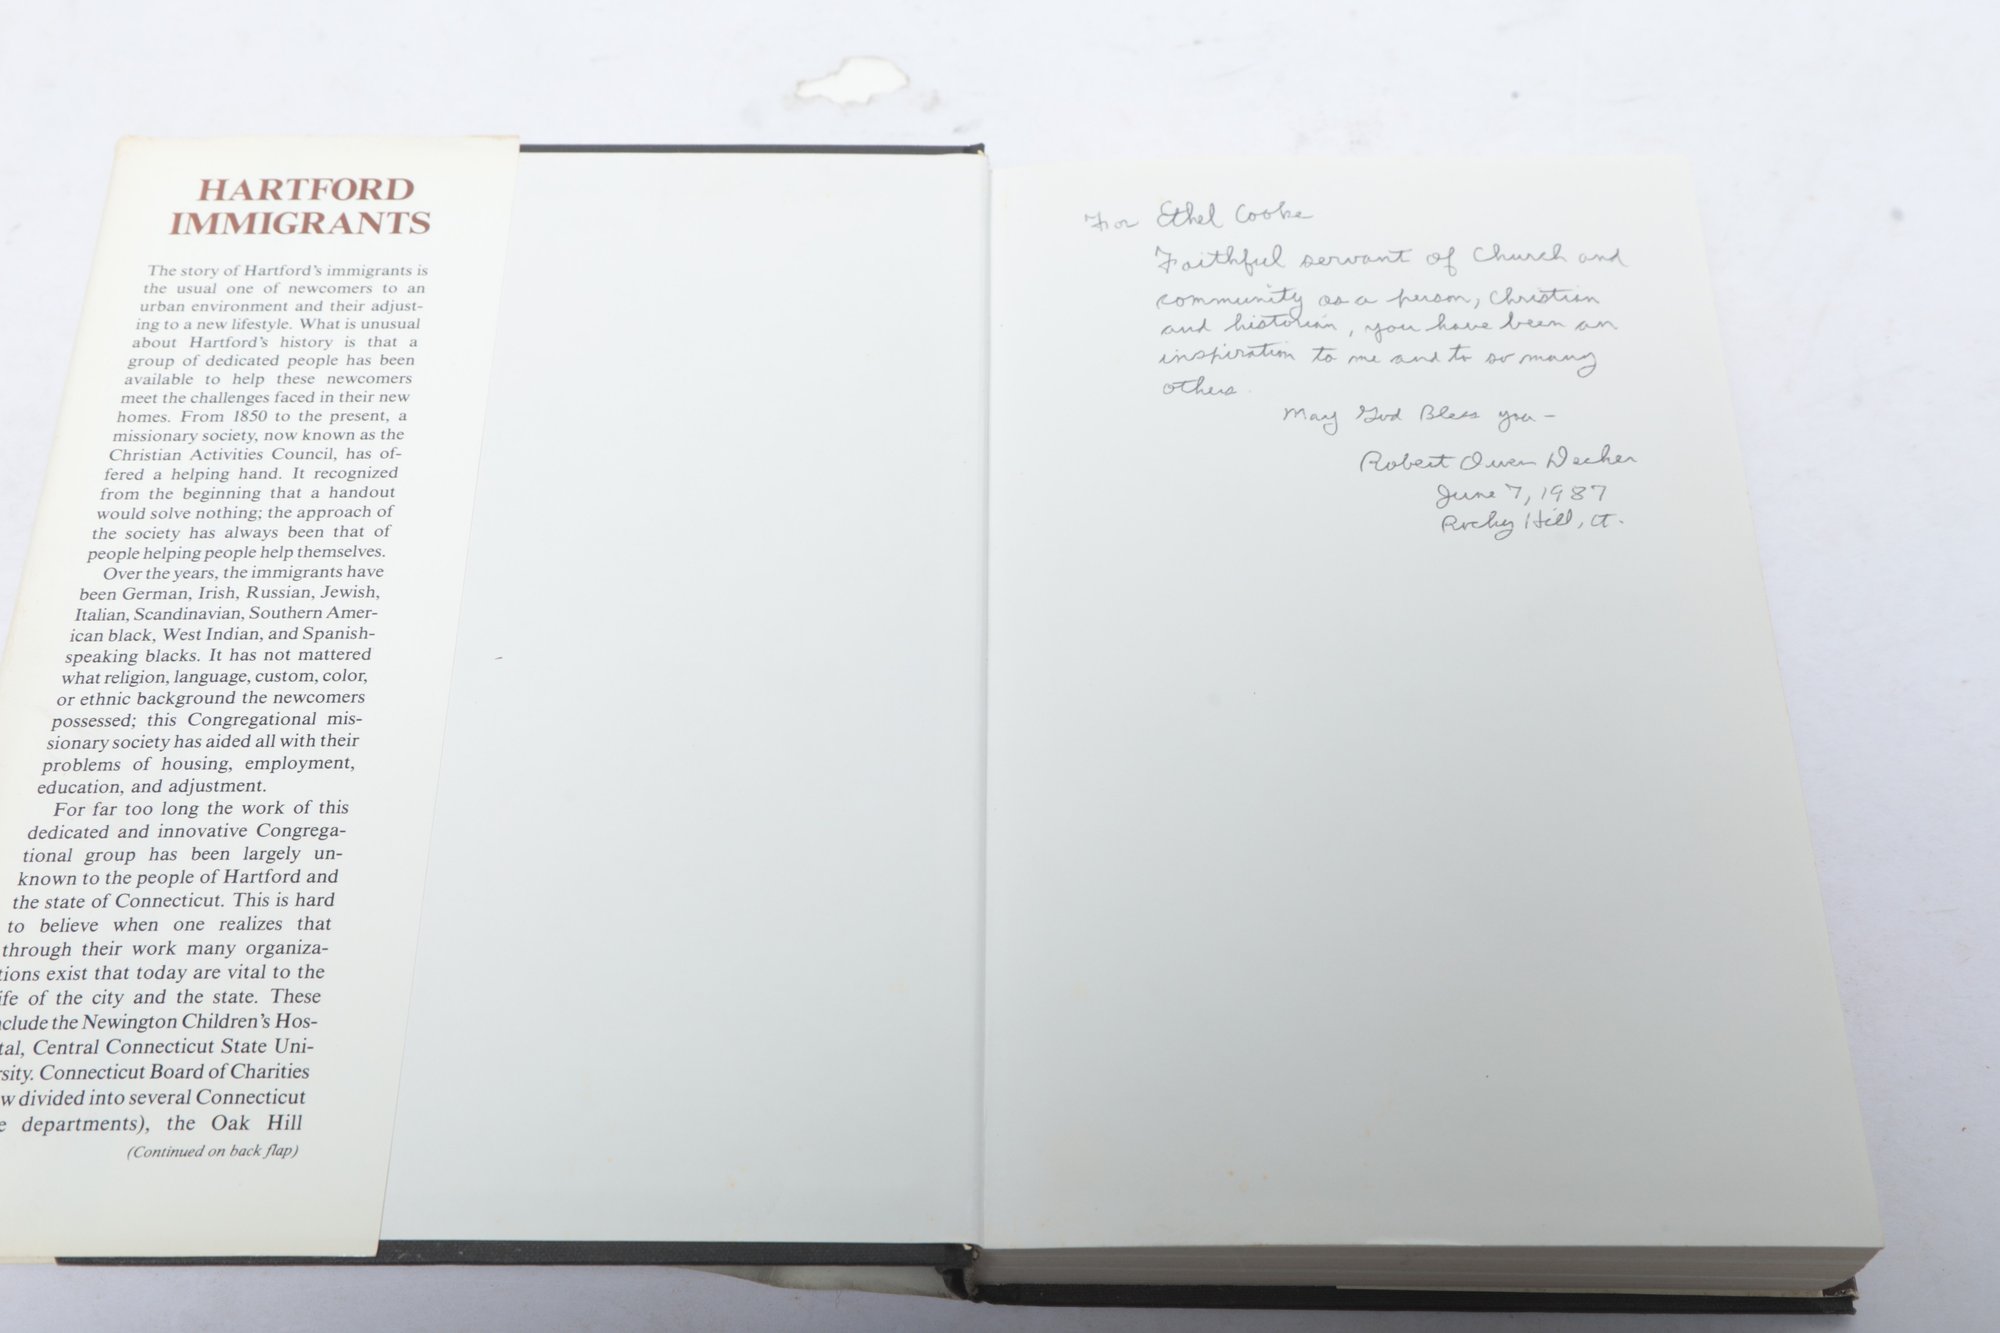 HARTFORD
IMMIGRANTS
The story of Hartford's immigrants is
the usual one of newcomers to an
urban environment and their adjust-
ing to a new lifestyle. What is unusual
about Hartford's history is that a
group of dedicated people has been
available to help these newcomers
meet the challenges faced in their new
homes. From 1850 to the present, a
missionary society, now known as the
Christian Activities Council, has of-
fered a helping hand. It recognized
from the beginning that a handout
would solve nothing; the approach of
the society has always been that of
people helping people help themselves.
Over the years, the immigrants have
been German, Irish, Russian, Jewish,
Italian, Scandinavian, Southern Amer-
ican black, West Indian, and Spanish-
speaking blacks. It has not mattered
what religion, language, custom, color,
or ethnic background the newcomers
possessed; this Congregational mis-
sionary society has aided all with their
problems of housing, employment,
education, and adjustment.
For far too long the work of this
dedicated and innovative Congrega-
tional group has been largely un-
known to the people of Hartford and
the state of Connecticut. This is hard
to believe when one realizes that
through their work many organiza-
tions exist that today are vital to the
ife of the city and the state. These
clude the Newington Children's Hos-
tal, Central Connecticut State Uni-
rsity. Connecticut Board of Charities
w divided into several Connecticut
e departments), the Oak Hill
(Continued on back flap)
For Ethel Cooke
Faithful servant of Church and
community as a person, Christian
and historian, you have been an
inspiration to me and to so many
others.
May God Bless you -
Robert Owen Decker
June 7, 1987
Rocky Hill, Ct.